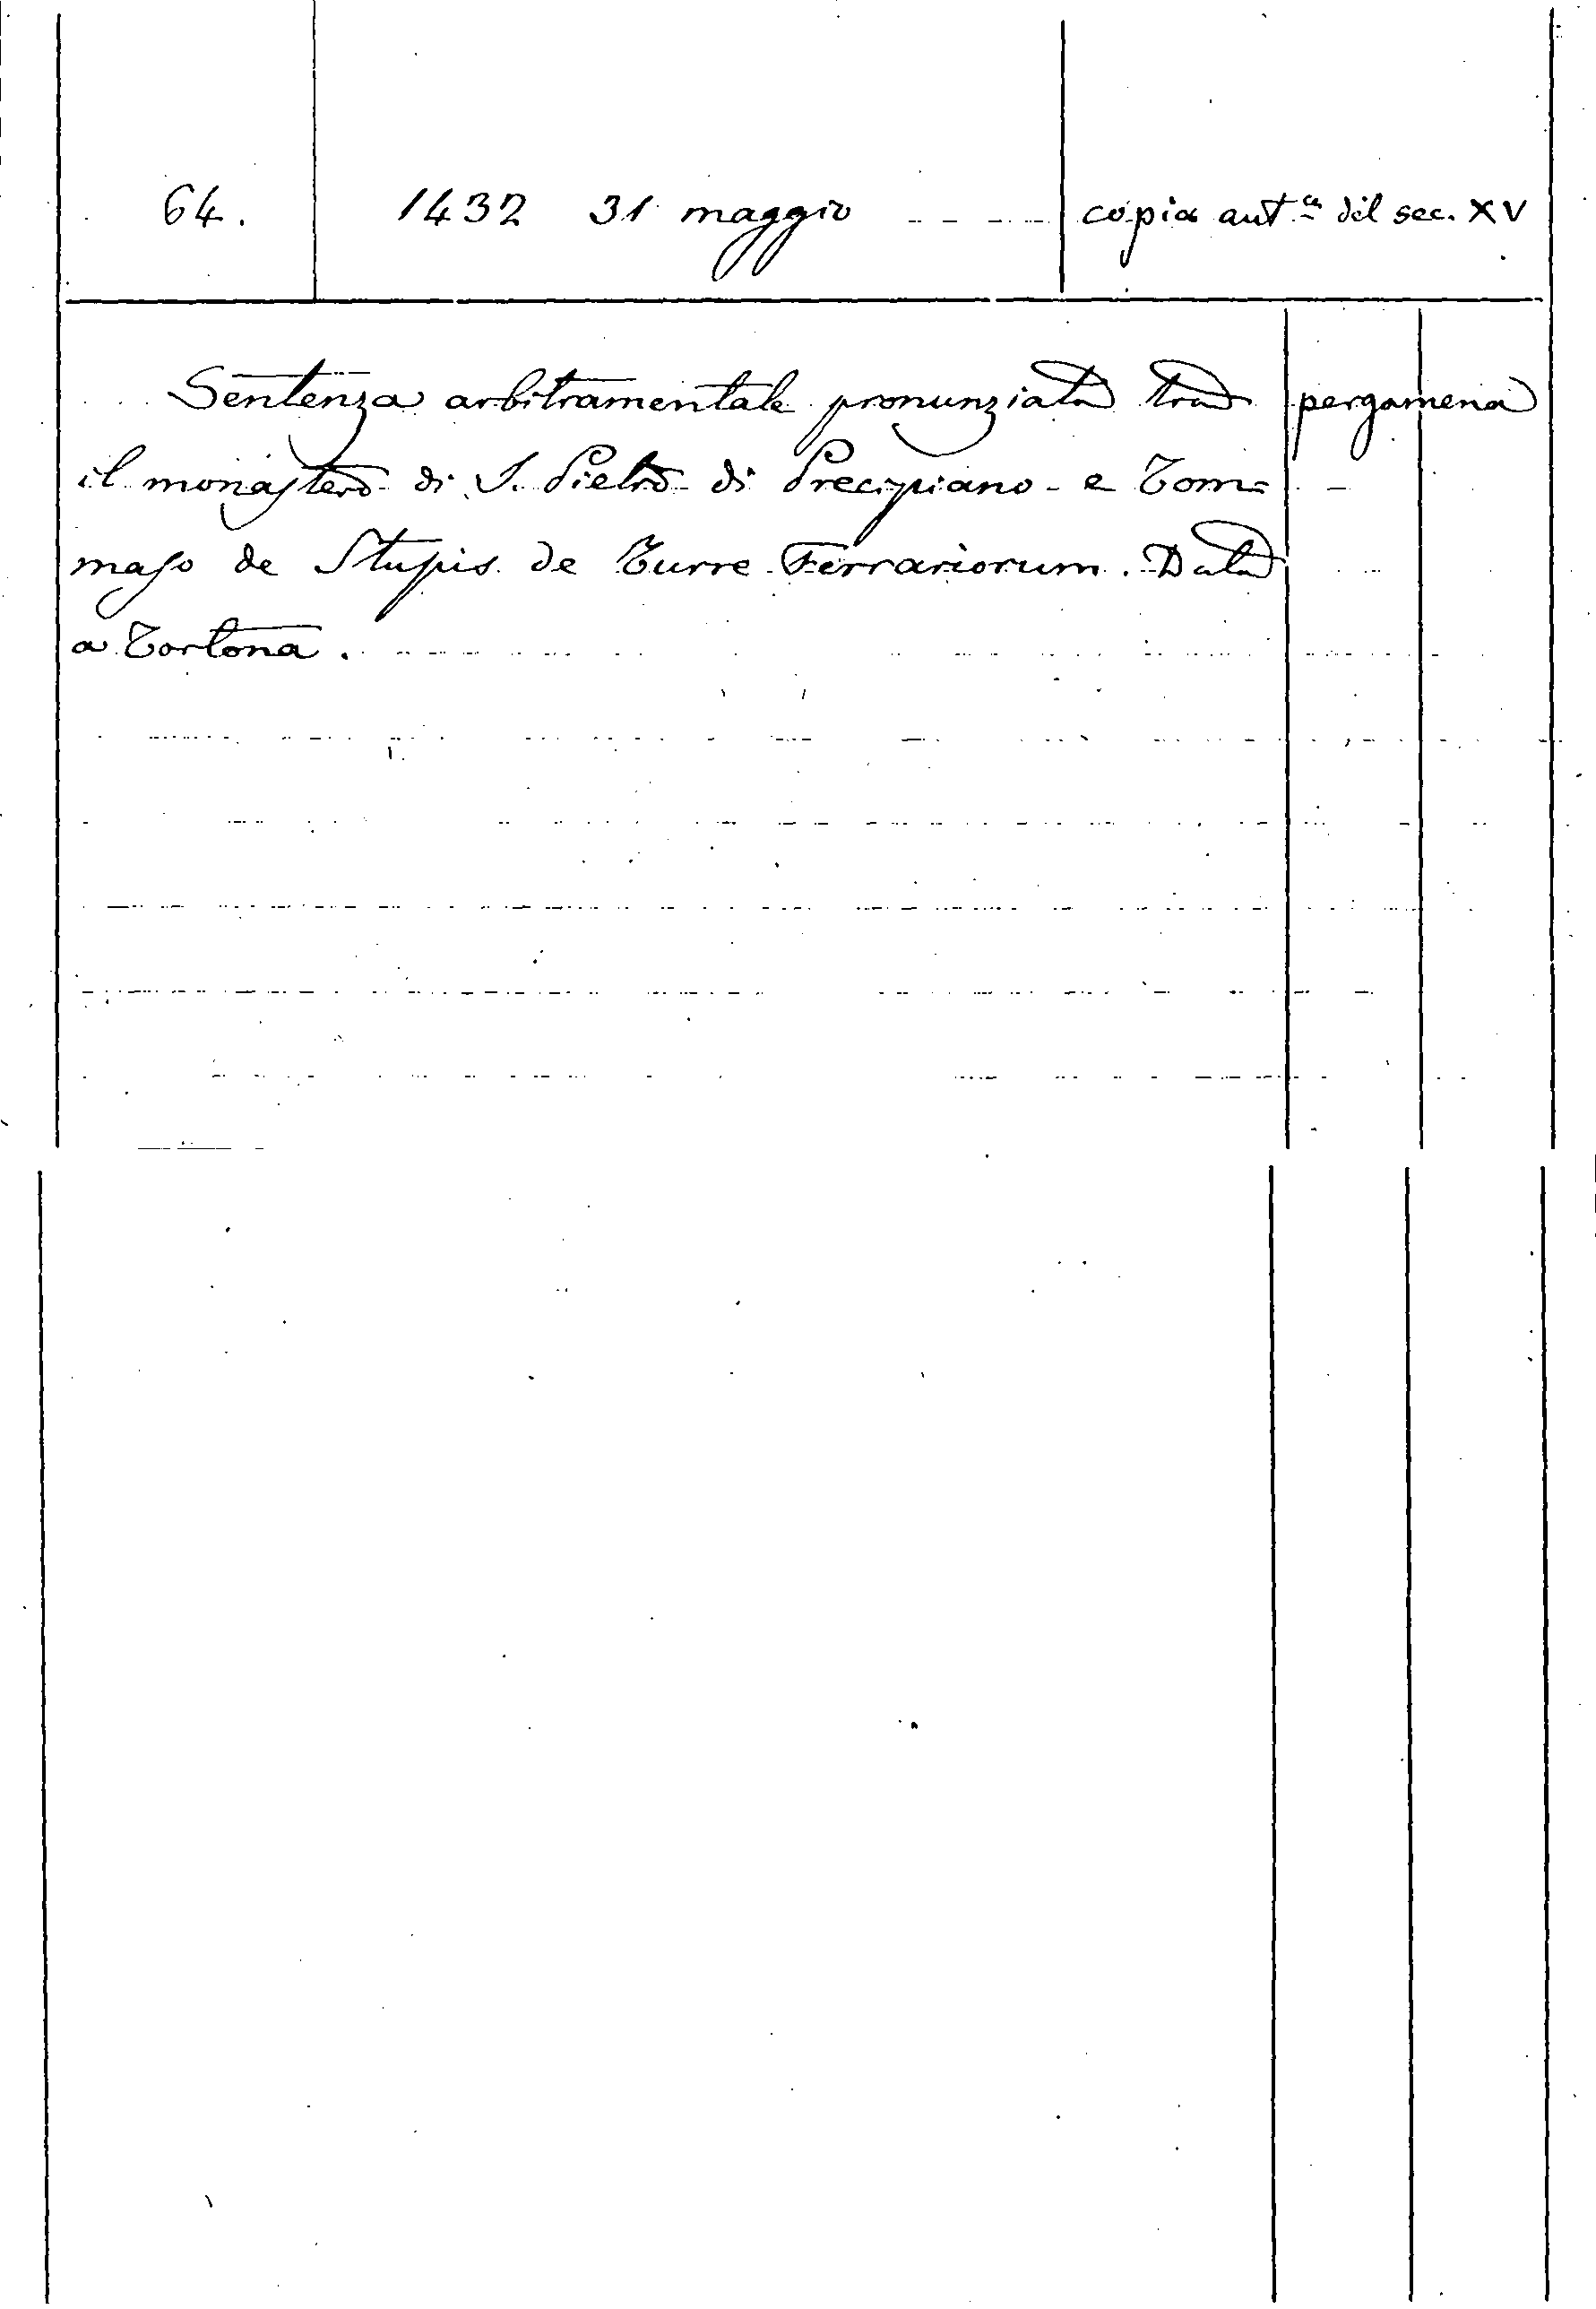 64. 1432 31 maggio copia aut.ca del sec. XV
Sentenza arbitramentale pronunziata tra pergamena
il monastero di S. Pietro di Precipiano e Tom=
maso de Stupis de Turre Ferrariorum. Data
a Tortona.